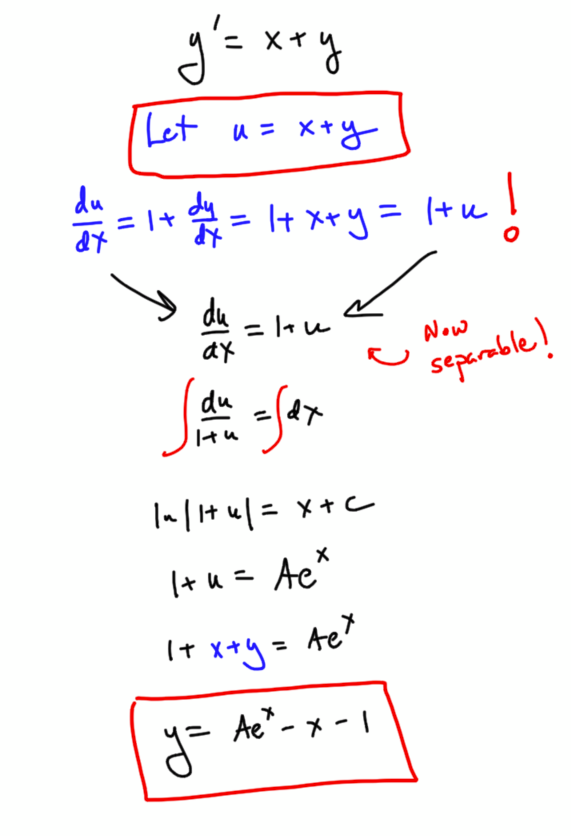 y' = x + y
Let u = x+y
du/dx = 1 + dy/dx = 1 + x + y = 1 + u !
du/dx = 1 + u
Now
separable!
∫ du/1+u = ∫ dx
ln|1+u| = x + c
1 + u = Ae^x
1 + x+y = Ae^x
y = Ae^x - x - 1